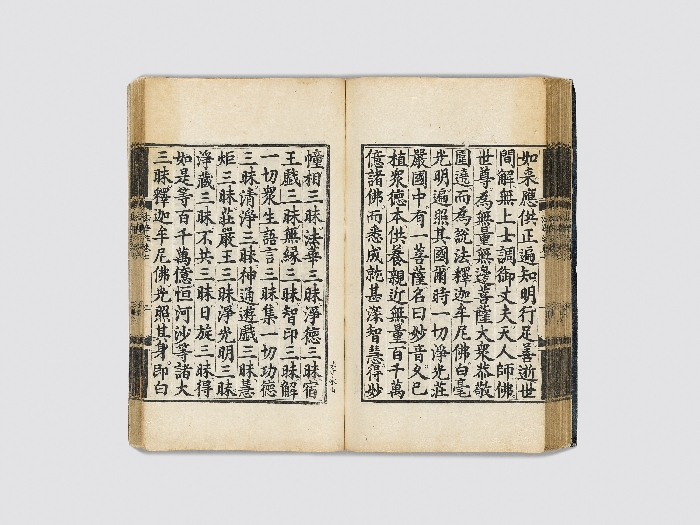 如來應供正遍知明行足善逝世
間解無上士調御丈夫天人師佛
世尊為無量無邊菩薩大衆恭敬
圍遶而為說法釋迦牟尼佛白毫
光明遍照其國爾時一切淨光莊
嚴國中有一菩薩名曰妙音久已
植衆德本供養親近無量百千萬
億諸佛而悉成就甚深智慧得妙
幢相三昧法華三昧淨德三昧宿
王戲三昧無緣三昧智印三昧解
一切衆生語言三昧集一切功德
三昧清淨三昧神通遊戲三昧慧
炬三昧莊嚴王三昧淨光明三昧
淨藏三昧不共三昧日旋三昧得
如是等百千萬億恒河沙等諸大
三昧釋迦牟尼佛光照其身即白